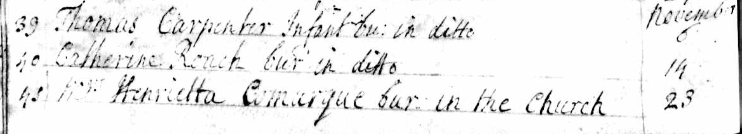 39 Thomas Carpenter Infant bur: in ditto November
40 Catherine Roach bur: in ditto 14
Henrietta Comarque bur: in the Church 23